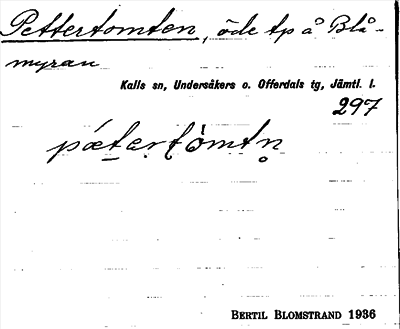 Pettertomten, öde tp å Blå-
myran
Kalls sn, Undersåkers o. Offerdals tg, Jämtl. l.
297
pǽtertòmtn̥
BERTIL BLOMSTRAND 1936